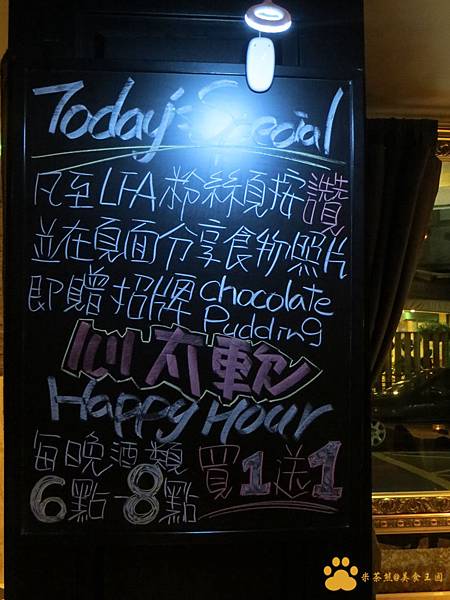 Today's Special
凡至LFA粉絲頁按讚
並在頁面分享食物照片
即贈招牌 chocolate
Pudding
心太軟
Happy Hour
每晚酒類
6點-8點
買1送1
米茶熊@美食王國